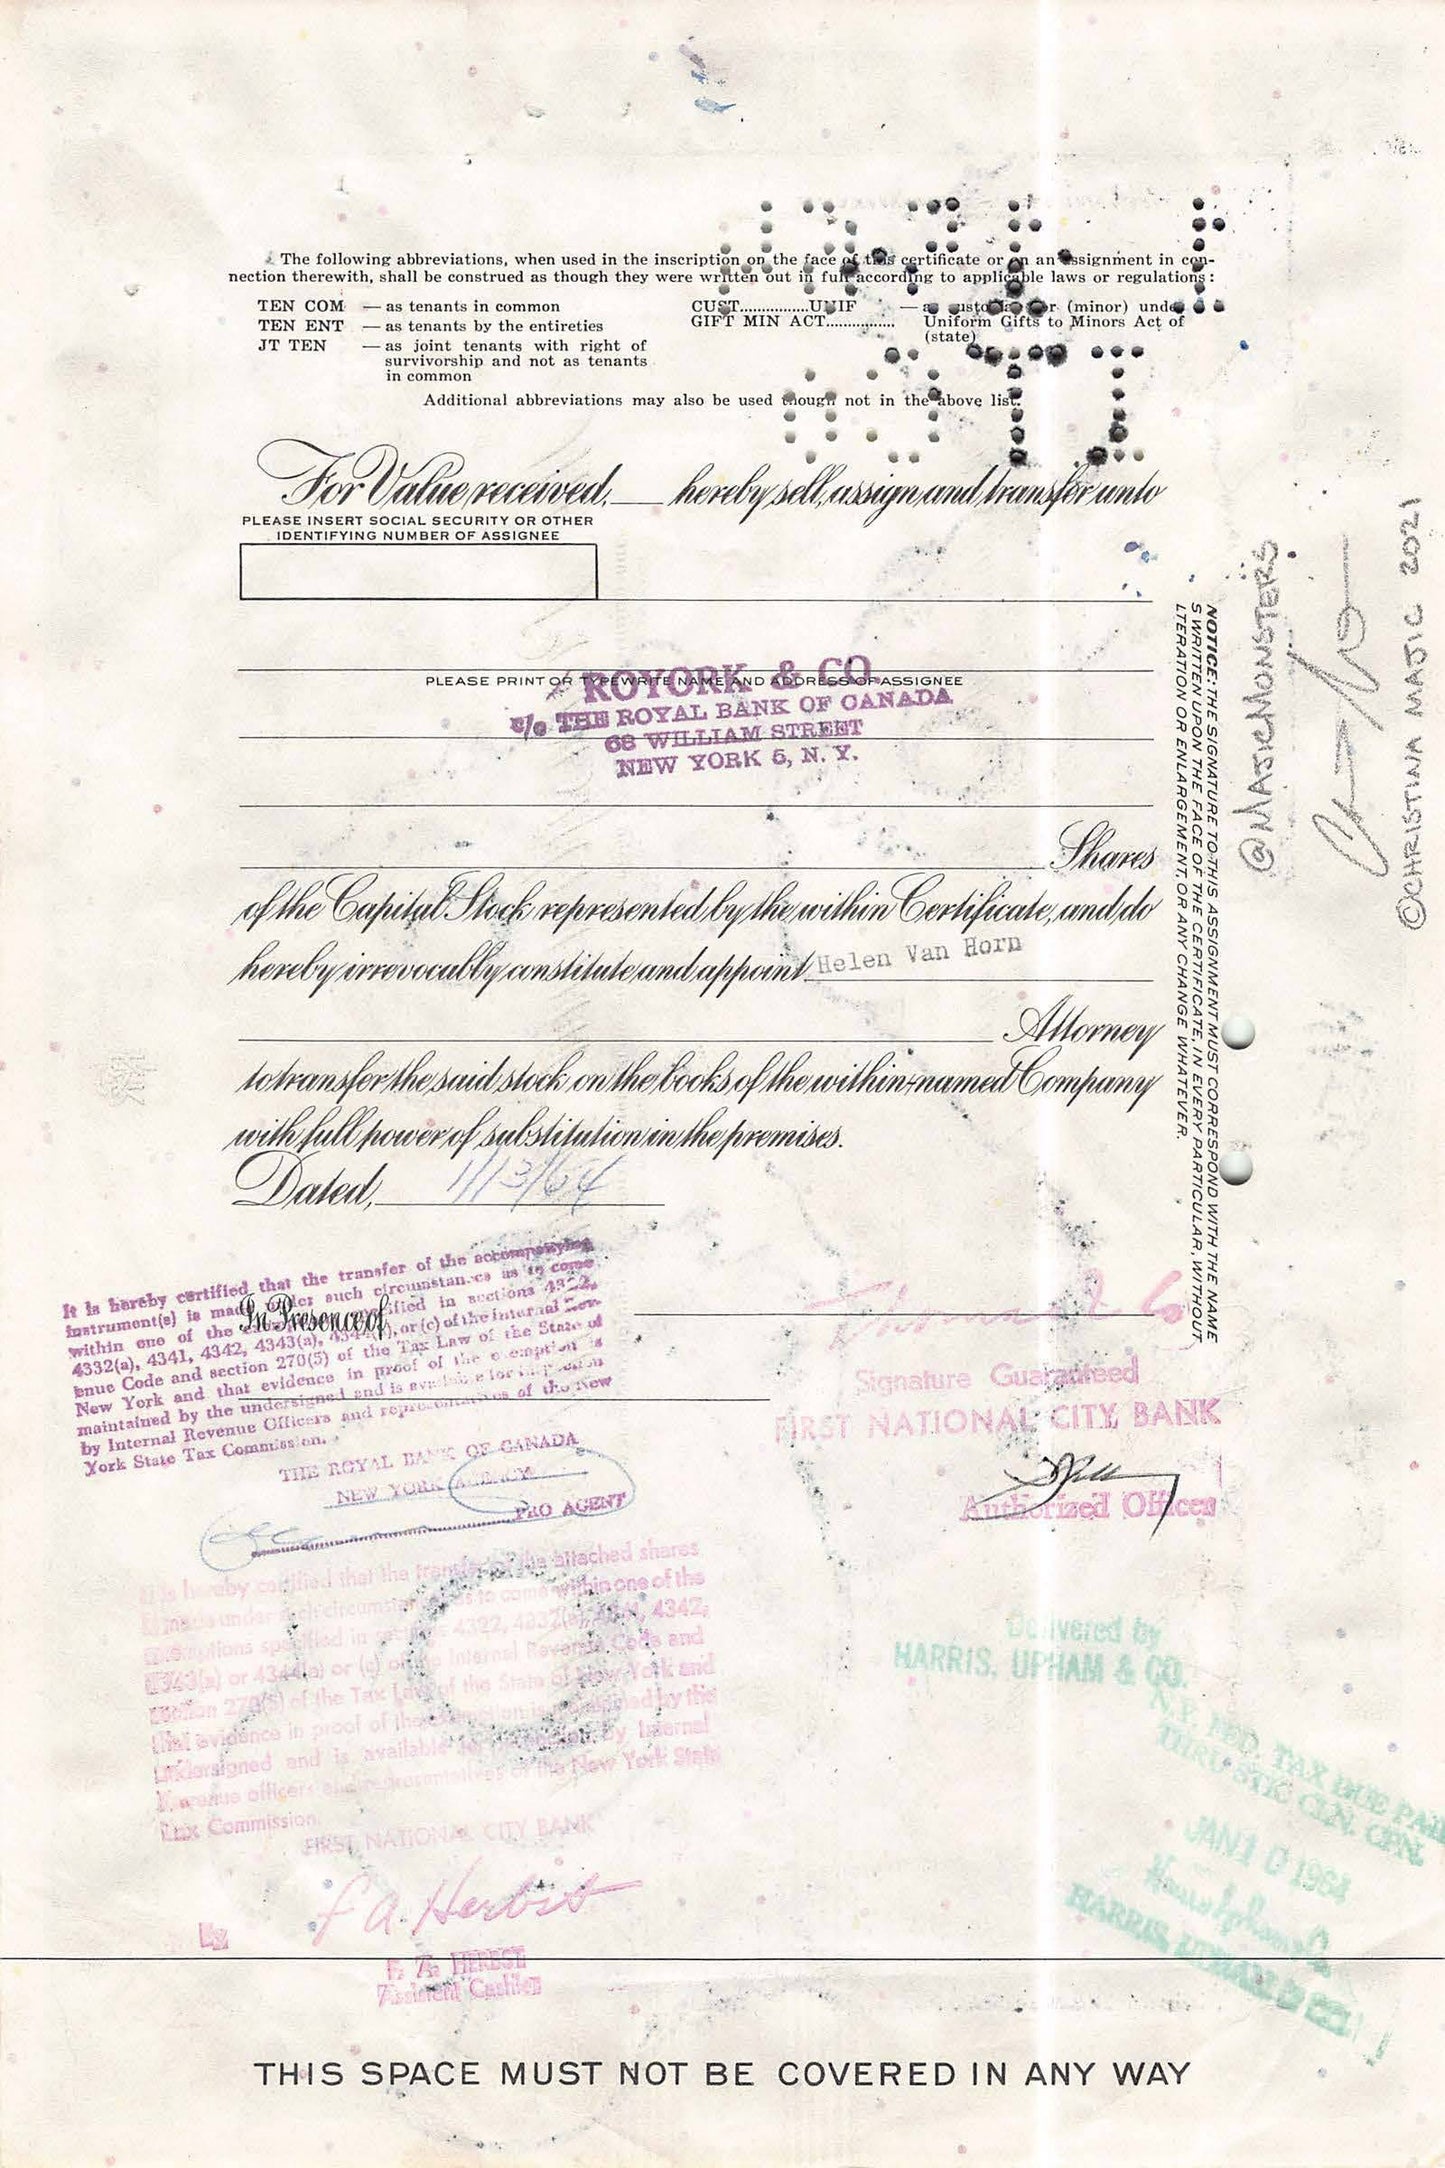 The following abbreviations, when used in the inscription on the face of this certificate or on an assignment in con-
nection therewith, shall be construed as though they were written out in full according to applicable laws or regulations:
TEN COM — as tenants in common
TEN ENT — as tenants by the entireties
JT TEN — as joint tenants with right of
survivorship and not as tenants
in common
CUST.................UNIF — as custodian for (minor) under
GIFT MIN ACT................ Uniform Gifts to Minors Act of
(state)
Additional abbreviations may also be used though not in the above list.
For Value received, ___ hereby sell, assign and transfer unto
PLEASE INSERT SOCIAL SECURITY OR OTHER
IDENTIFYING NUMBER OF ASSIGNEE
PLEASE PRINT OR TYPEWRITE NAME AND ADDRESS OF ASSIGNEE
ROYORK & CO
c/o THE ROYAL BANK OF CANADA
68 WILLIAM STREET
NEW YORK 5, N. Y.
Shares
of the Capital Stock represented by the within Certificate, and do
hereby irrevocably constitute and appoint Helen Van Horn
Attorney
to transfer the said stock on the books of the within-named Company
with full power of substitution in the premises.
Dated, 1/13/64
In Presence of
It is hereby certified that the transfer of the accompanying
instrument(s) is made under such circumstances as to come
within one of the specified in sections 4322,
4332(a), 4341, 4342, 4343(a), 4344(a), or (c) of the Internal Rev-
enue Code and section 270(5) of the Tax Law of the State of
New York and that evidence in proof of the exemption is
maintained by the undersigned and is available for inspection
by Internal Revenue Officers and representatives of the New
York State Tax Commission.
THE ROYAL BANK OF CANADA
NEW YORK AGENCY
PRO AGENT
Signature Guaranteed
FIRST NATIONAL CITY BANK
Authorized Officer
It is hereby certified that the transfer of the attached shares
is made under such circumstances as to come within one of the
exemptions specified in sections 4322, 4332(a), 4341, 4342,
4343(a) or 4344(a) or (c) of the Internal Revenue Code and
section 270(5) of the Tax Law of the State of New York and
that evidence in proof of the exemption is by the
undersigned and is available for inspection by Internal
Revenue officers and representatives of the New York State
Tax Commission.
FIRST NATIONAL CITY BANK
F. A. Herbst
F. A. HERBST
Assistant Cashier
Delivered by
HARRIS, UPHAM & CO.
N.Y. FED. TAX DUE PAID
THRU STK. CLN. CPN.
JAN 10 1964
HARRIS, UPHAM & CO.
NOTICE: THE SIGNATURE TO THIS ASSIGNMENT MUST CORRESPOND WITH THE NAME
S WRITTEN UPON THE FACE OF THE CERTIFICATE, IN EVERY PARTICULAR, WITHOUT
LTERATION OR ENLARGEMENT, OR ANY CHANGE WHATEVER.
@MAJICMONSTERS
©CHRISTINA MAJIC 2021
THIS SPACE MUST NOT BE COVERED IN ANY WAY